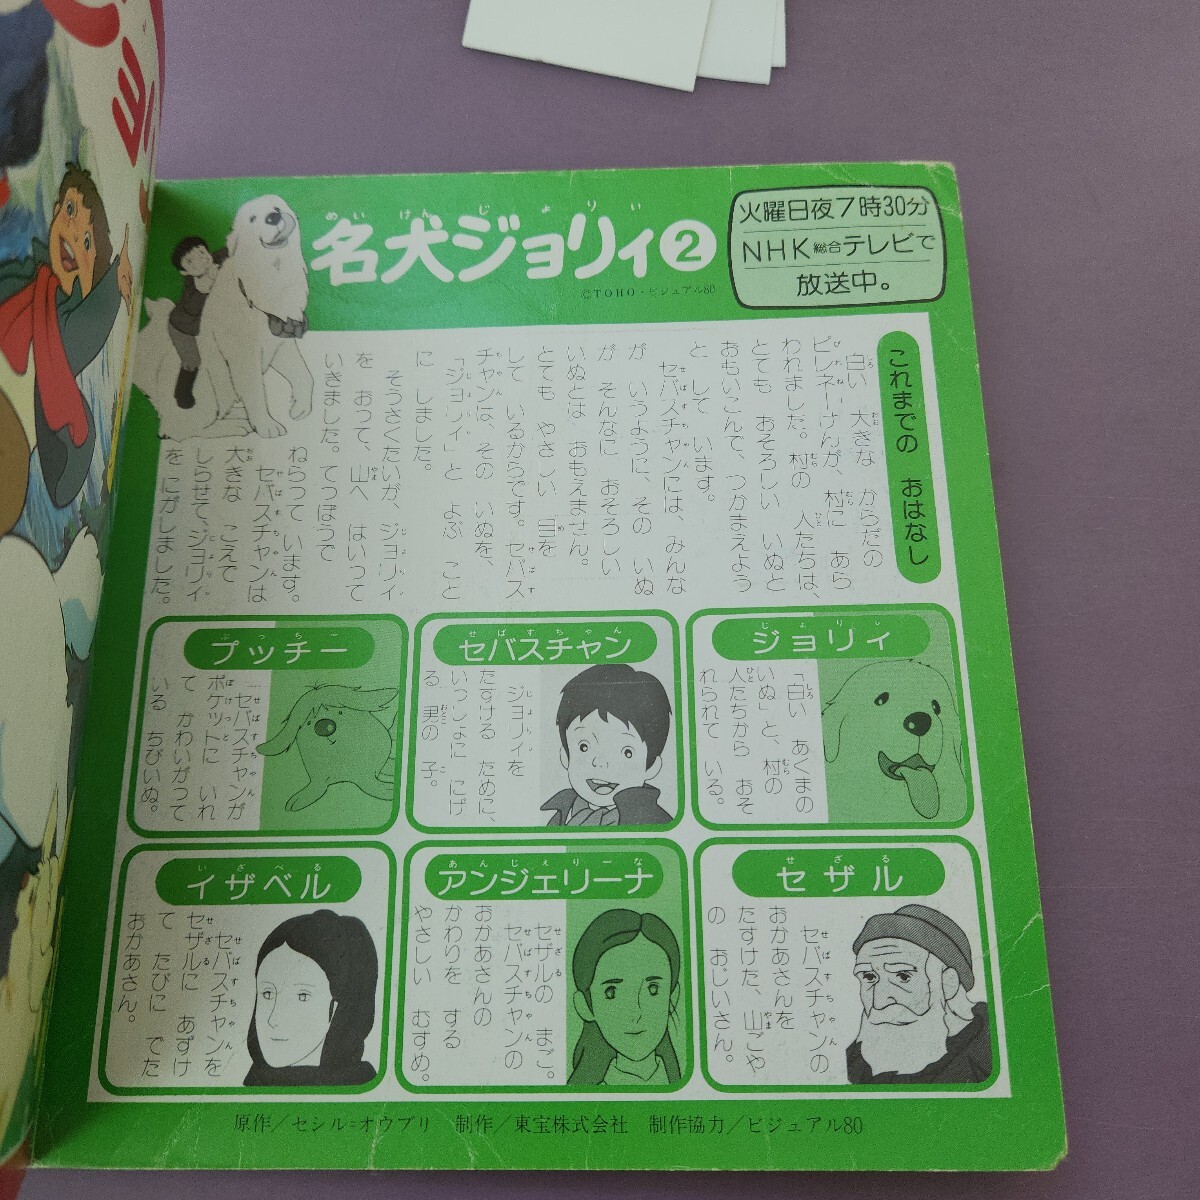 名犬ジョリィ②
めいけんじょりい
©TOHO・ビジュアル80
火曜日夜7時30分
NHK総合テレビで
放送中。
これまでの おはなし
白い 大きな からだの
ピレネーけんが、村に あら
われました。村の 人たちは、
とても おそろしい いぬと
おもいこんで、つかまえよう
と して います。
セバスチャンには、みんな
が いうように、その いぬ
が そんなに おそろしい
いぬとは おもえません。
とても やさしい 目を
して いるからです。セバス
チャンは、その いぬを、
「ジョリィ」と よぶ こと
に しました。
そうさくたいが、ジョリィ
を おって、山へ はいって
いきました。てっぽうで
ねらって います。
セバスチャンは
大きな こえで
しらせて、ジョリィ
を にがしました。
ジョリィ
「白い あくまの
いぬ」と、村の
人たちから おそ
れられて いる。
セバスチャン
せばすちゃん
ジョリィを
たすける ために、
いっしょに にげ
る 男の 子。
プッチー
ぷっちー
セバスチャンが
ポケットに いれ
て かわいがって
いる ちびいぬ。
セザル
せざる
セバスチャンの
おかあさんを
たすけた、山ごや
の おじいさん。
アンジェリーナ
あんじぇりーな
セザルの まご。
セバスチャンの
おかあさんの
かわりを する
やさしい むすめ。
イザベル
いざべる
セバスチャンを
セザルに あずけ
て たびに でた
おかあさん。
原作／セシル=オウブリ 制作／東宝株式会社 制作協力／ビジュアル80